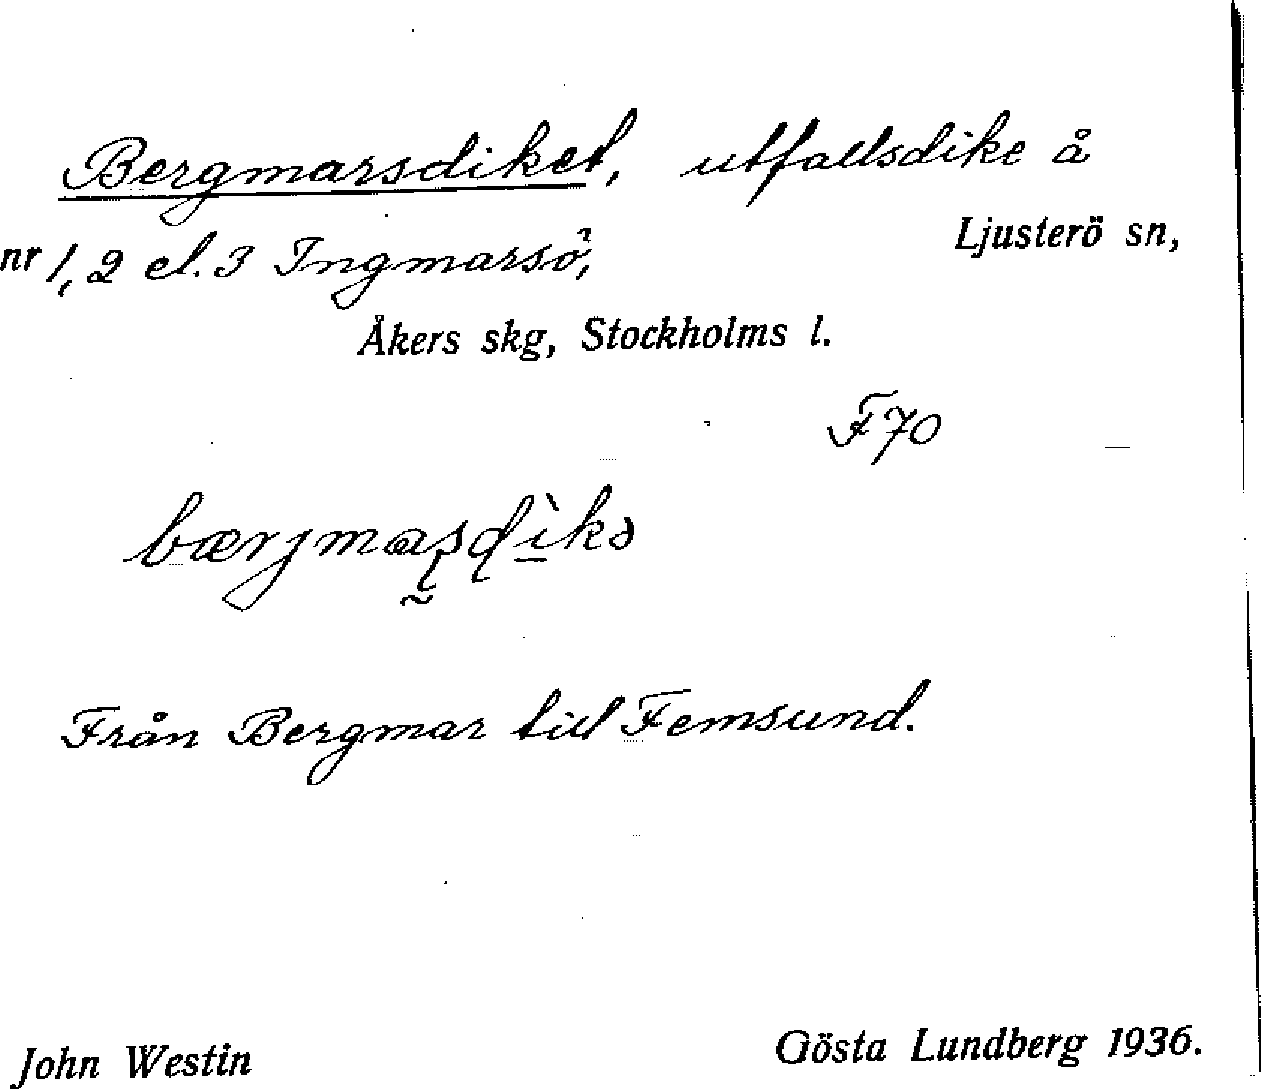 Bergmarsdiket, utfallsdike å
nr 1, 2 el. 3 Ingmarsö, Ljusterö sn,
Åkers skg, Stockholms l.
F70
Från Bergmar till Femsund.
John Westin Gösta Lundberg 1936.